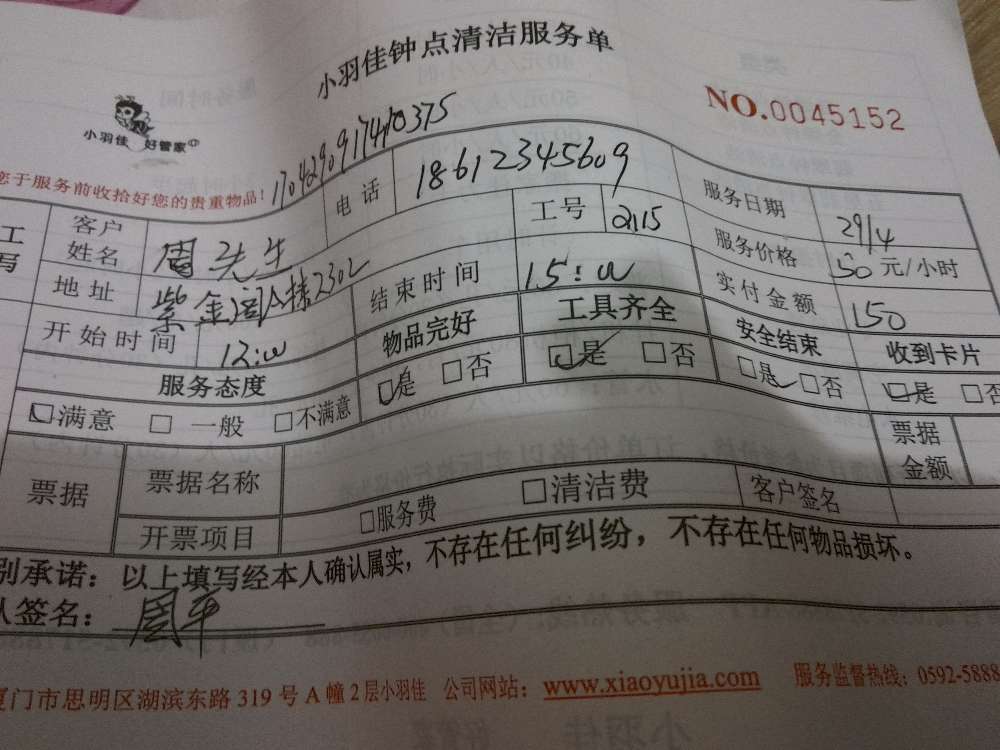 小羽佳钟点清洁服务单
小羽佳 好管家
NO.0045152
您于服务前收拾好您的贵重物品!
客户姓名 周先生 电话 18612345609 工号 2115 服务日期 29/4
地址 紫金阁A栋2302 结束时间 15:00 服务价格 50元/小时
开始时间 12:00 实付金额 150
服务态度 物品完好 工具齐全 安全结束 收到卡片
□满意 □一般 □不满意 □是 □否 □是 □否 □是 □否 □是 □否
票据 票据名称 票据金额
开票项目 □服务费 □清洁费 客户签名
别承诺：以上填写经本人确认属实，不存在任何纠纷，不存在任何物品损坏。
人签名：周平
厦门市思明区湖滨东路319号A幢2层小羽佳 公司网站：www.xiaoyujia.com 服务监督热线：0592-5888